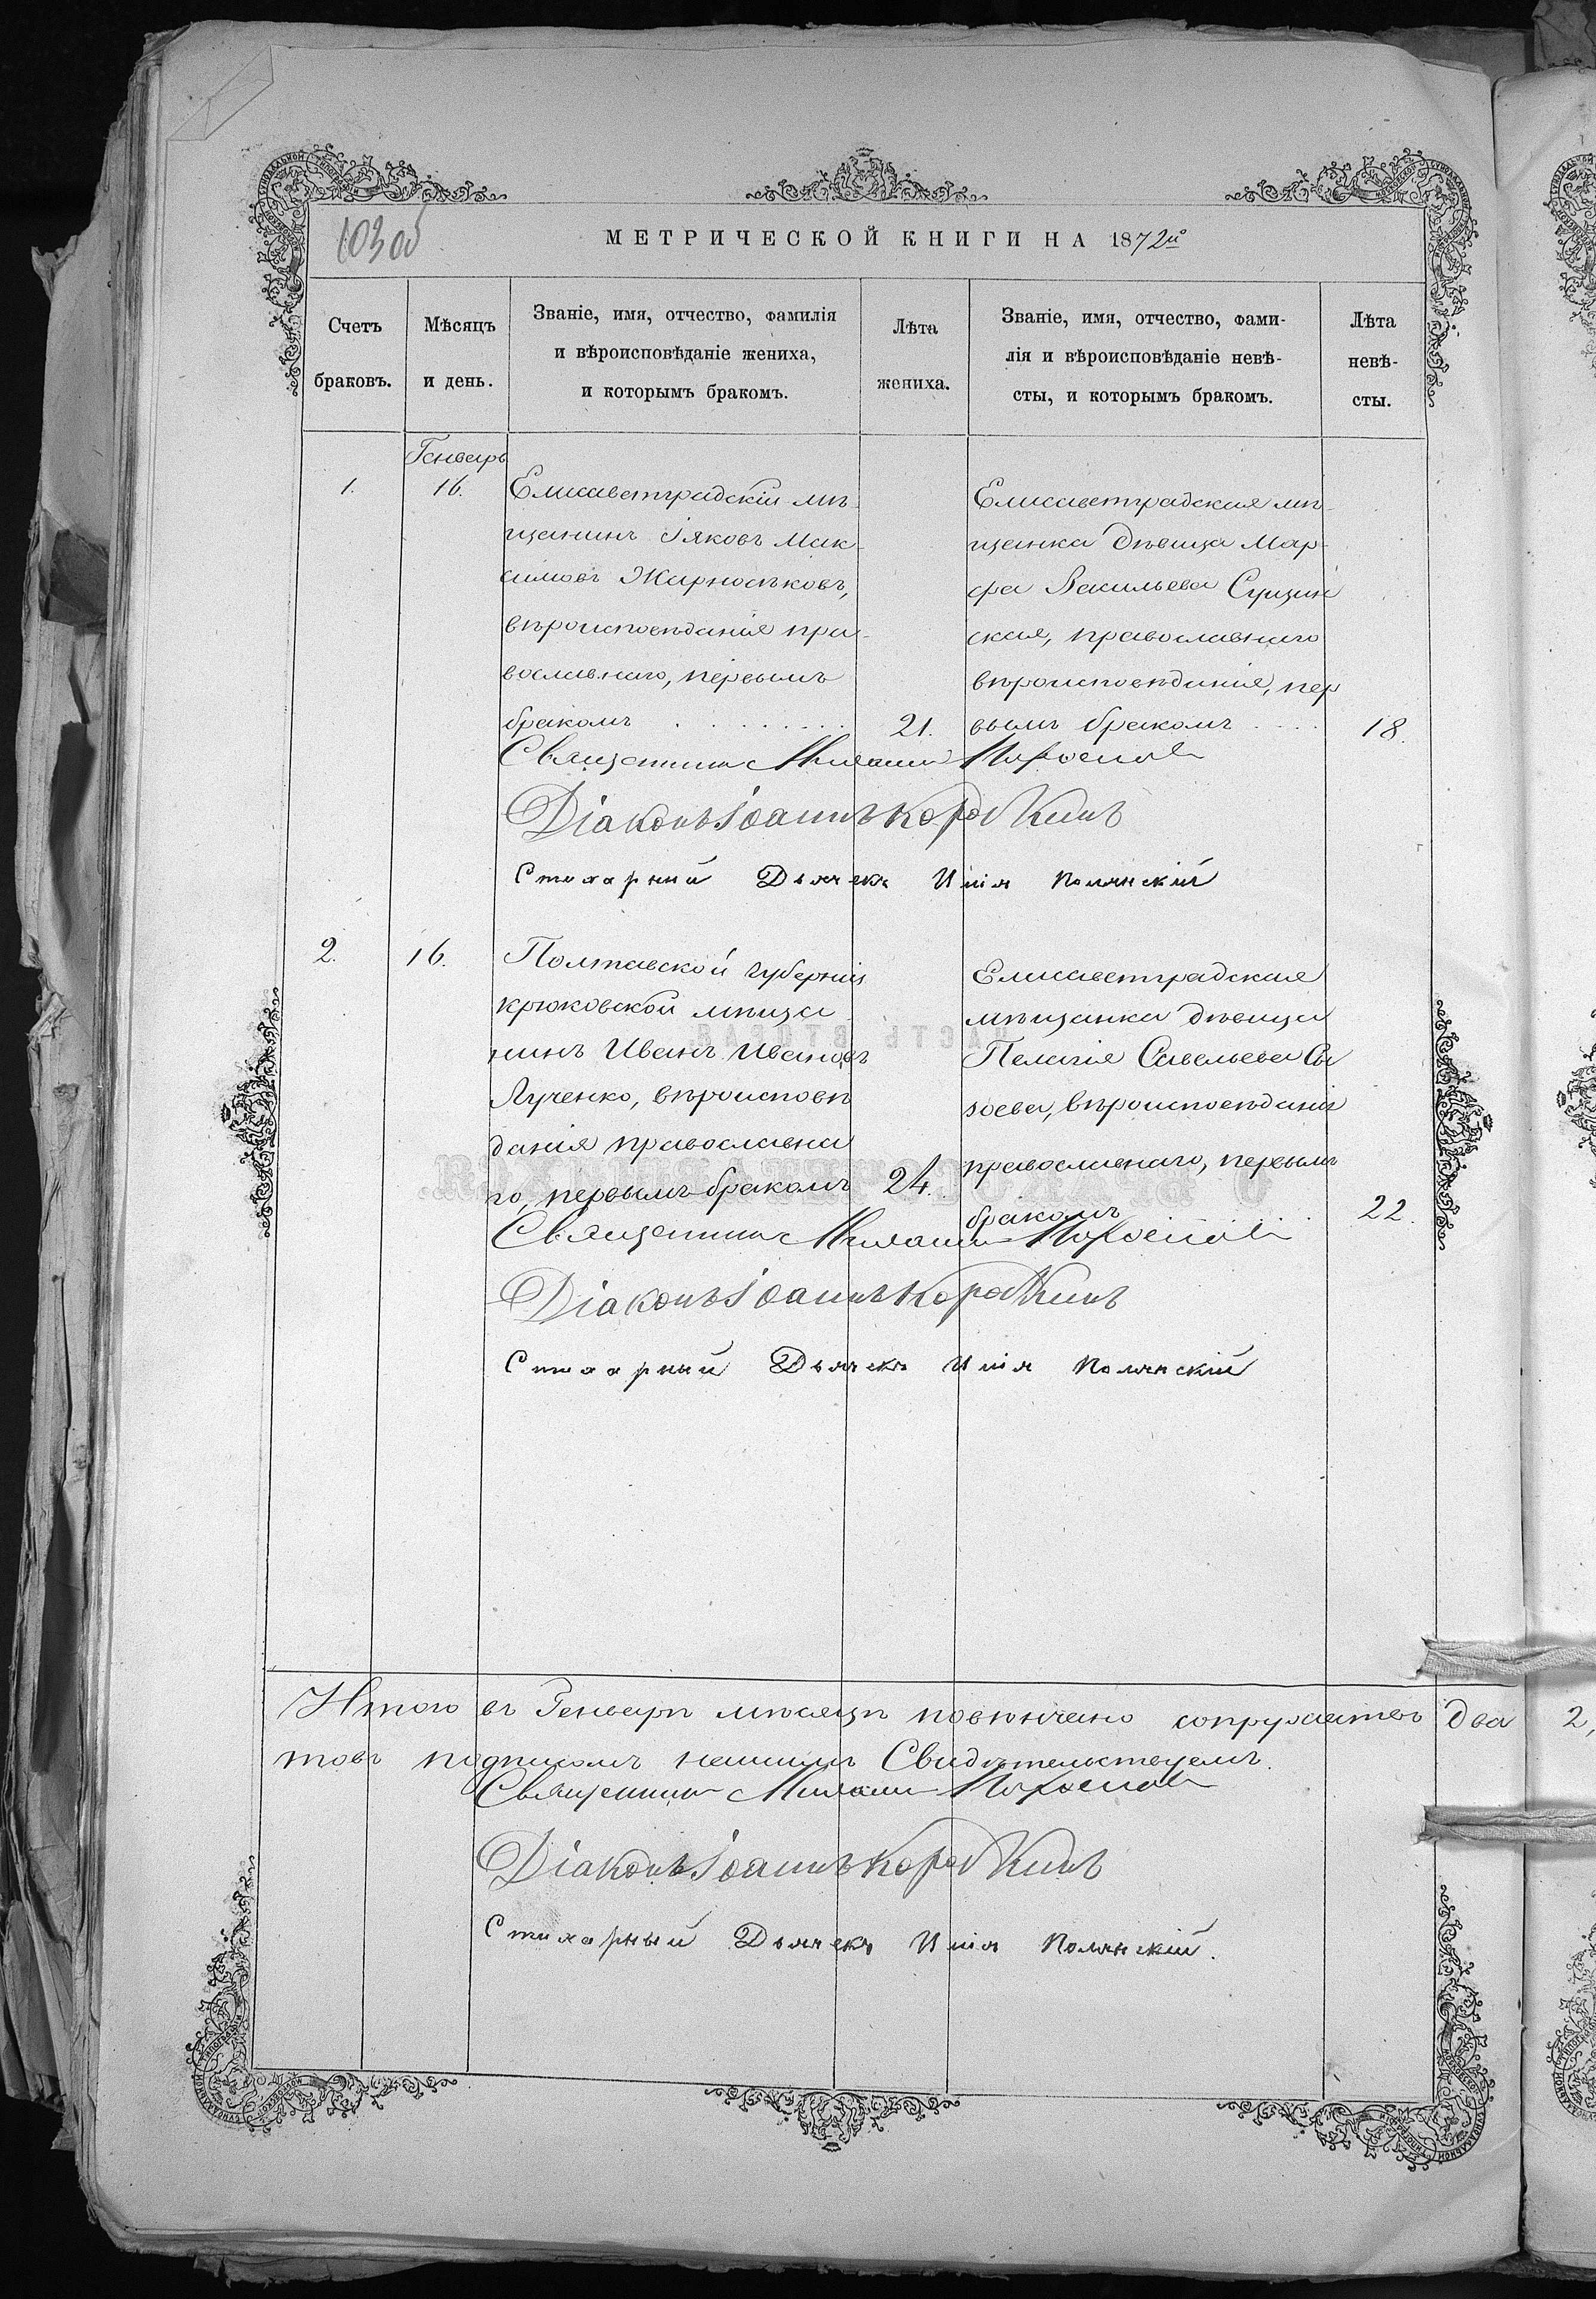 103 об
МЕТРИЧЕСКОЙ КНИГИ НА 1872й
Счетъ браковъ.
Мѣсяцъ и день.
Званіе, имя, отчество, фамилія
и вѣроисповѣданіе жениха,
и которымъ бракомъ.
Лѣта жениха.
Званіе, имя, отчество, фами-
лія и вѣроисповѣданіе невѣ-
сты, и которымъ бракомъ.
Лѣта
невѣ-
сты.
Генварь
1.
16.
Елисаветградскій мѣ-
щанинъ Іяковъ Мак-
симовъ Жарносѣковъ,
вѣроисповѣданія пра-
вославнаго, первымъ
бракомъ
21.
Елисаветградская мѣ-
щанка дѣвица Мар-
фа Васильева Сущин
ская, православнаго
вѣроисповѣданія, пер
вымъ бракомъ
18.
Священникъ
Діаконъ Іоаннъ
Стихарный Дьячекъ Илія Полянскій
2.
16.
Полтавской губерніи
крюковской мѣща
нинъ Иванъ Ивановъ
Лученко, вѣроисповѣ
данія православна
го, первымъ бракомъ
24.
Елисаветградская
мѣщанка дѣвица
Пелагія Савельева Сы
зоева, вѣроисповѣданія
православнаго, первымъ
бракомъ
22.
Священникъ
Діаконъ Іоаннъ
Стихарный Дьячекъ Илія Полянскій
Итого въ Генварѣ мѣсяцѣ повѣнчано супружествъ два
2,
томъ подписомъ нашимъ Свидѣтельствуемъ.
Священникъ
Діаконъ Іоаннъ
Стихарный Дьячекъ Илія Полянскій.